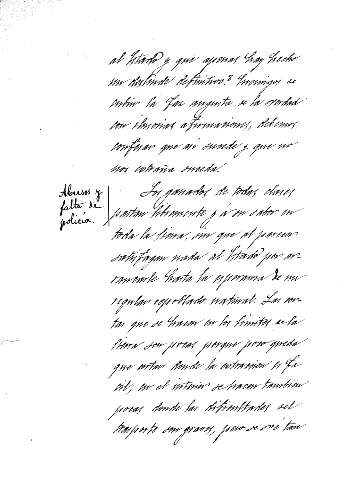 al Estado y que apenas hay hecho
un deslinde definitivo? Enemigos de
cubrir la faz augusta de la verdad
con ilusorias afirmaciones, debemos
confesar que así sucede y que no
nos extraña suceda.
Abusos y
falta de
policía.
Los ganados de todas clases
pastan libremente y á su sabor en
toda la sierra, sin que al parecer
satisfagan nada al Estado por ar-
rancarle hasta la esperanza de un
regular repoblado natural. Las cor-
tas que se hacen en los límites de la
sierra son pocas, porque poco queda
que cortar donde la extracción es fá-
cil; en el interior se hacen tambien
pocas donde las dificultades del
trasporte son graves, pero se vé tan